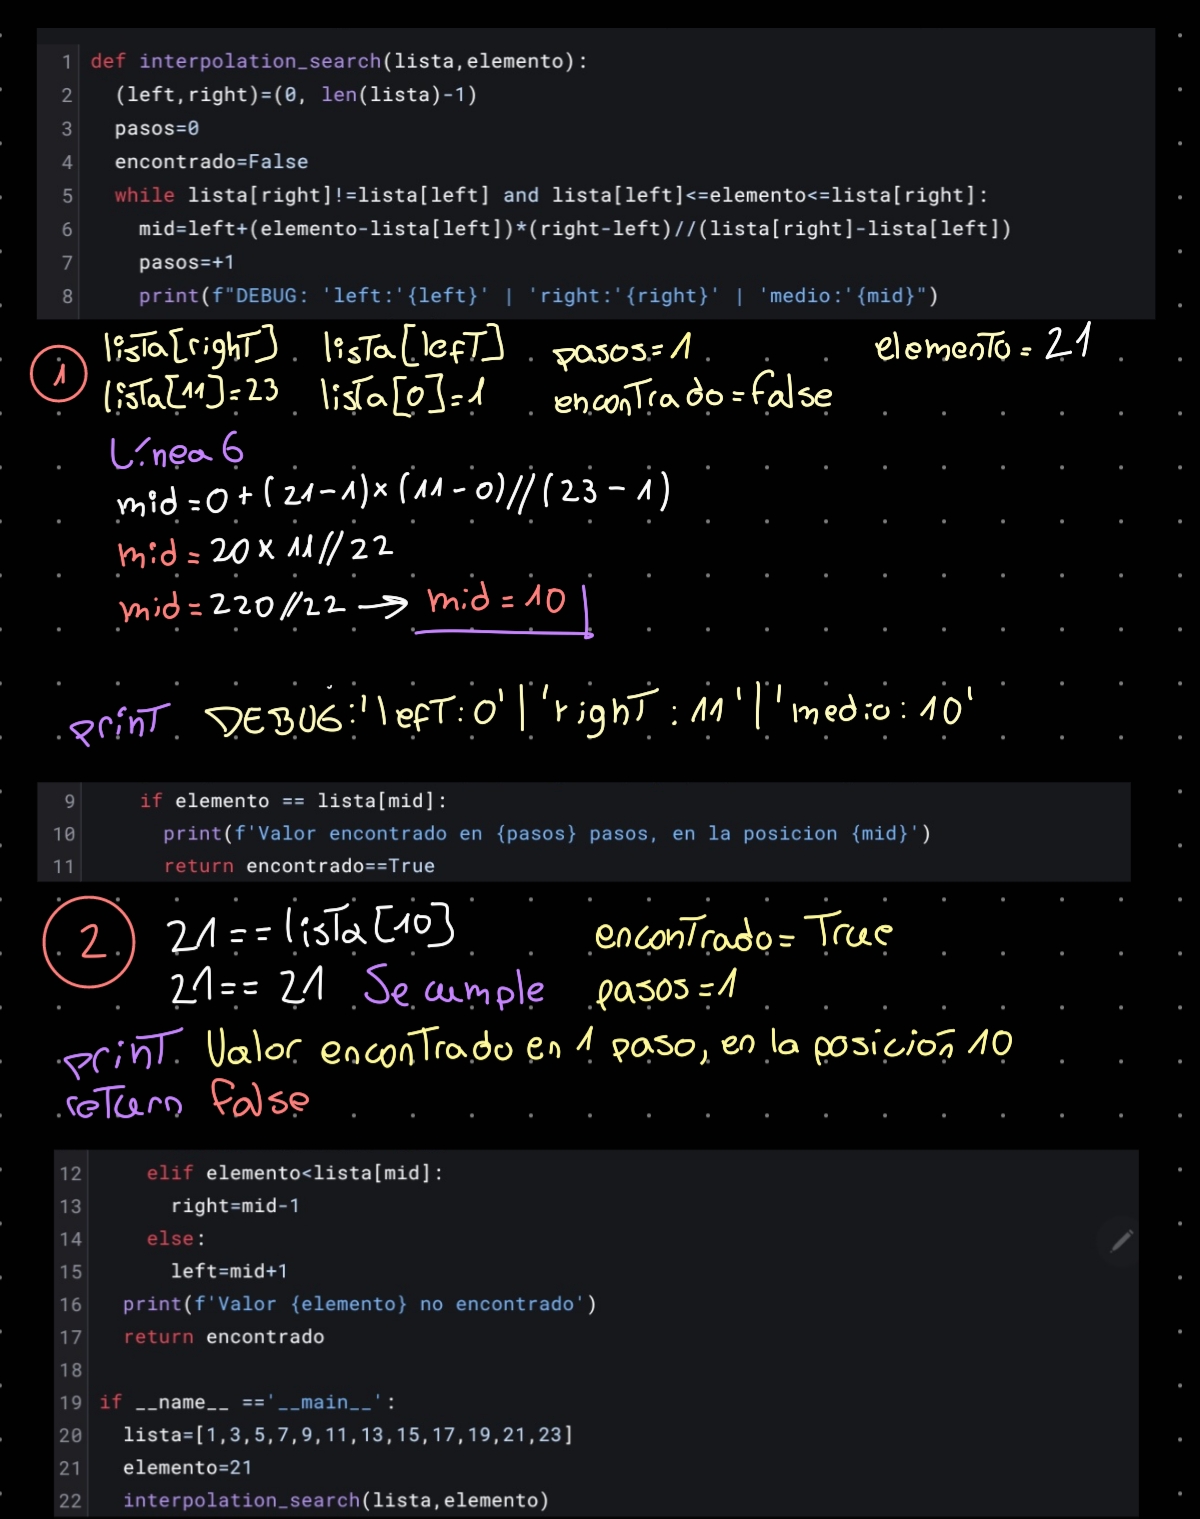 1 def interpolation_search(lista,elemento):
2 (left,right)=(0, len(lista)-1)
3 pasos=0
4 encontrado=False
5 while lista[right]!=lista[left] and lista[left]<=elemento<=lista[right]:
6 mid=left+(elemento-lista[left])*(right-left)//(lista[right]-lista[left])
7 pasos=+1
8 print(f"DEBUG: 'left:'{left}' | 'right:'{right}' | 'medio:'{mid}")
1 lista[right] lista[left] pasos=1 elemento=21
lista[11]=23 lista[0]=1 encontrado=false
Línea 6
mid=0+(21-1)×(11-0)//(23-1)
mid=20×11//22
mid=220//22→ mid=10
print DEBUG:'left:0'|'right:11'|'medio:10'
9 if elemento == lista[mid]:
10 print(f'Valor encontrado en {pasos} pasos, en la posicion {mid}')
11 return encontrado==True
2 21==lista[10] encontrado=True
21==21 Se cumple pasos=1
print Valor encontrado en 1 paso, en la posición 10
return false
12 elif elemento<lista[mid]:
13 right=mid-1
14 else:
15 left=mid+1
16 print(f'Valor {elemento} no encontrado')
17 return encontrado
18
19 if __name__ =='__main__':
20 lista=[1,3,5,7,9,11,13,15,17,19,21,23]
21 elemento=21
22 interpolation_search(lista,elemento)